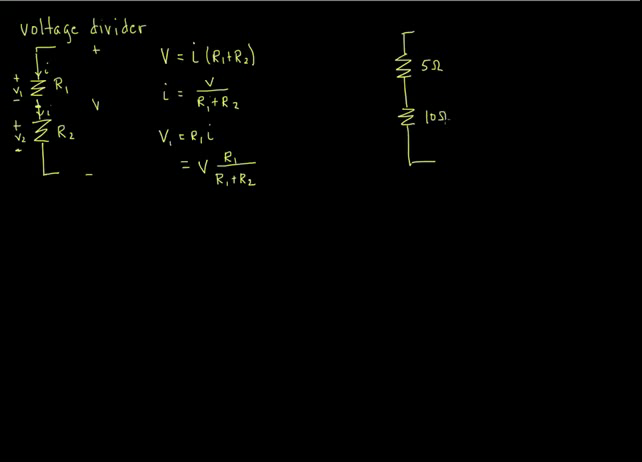 voltage divider
+
i
+
V₁
-
R₁
i
V
+
V₂
-
R₂
-
V = i (R₁+R₂)
i = V / R₁+R₂
V₁ = R₁ i
= V R₁ / R₁+R₂
5Ω
10Ω